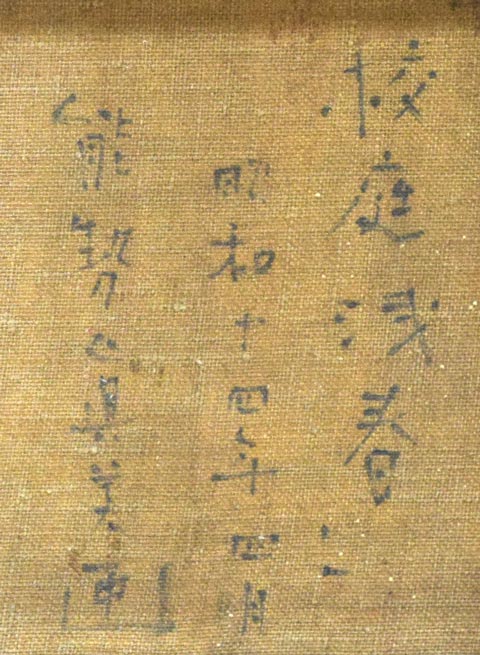 校庭浅春
昭和十四年四月
能勢